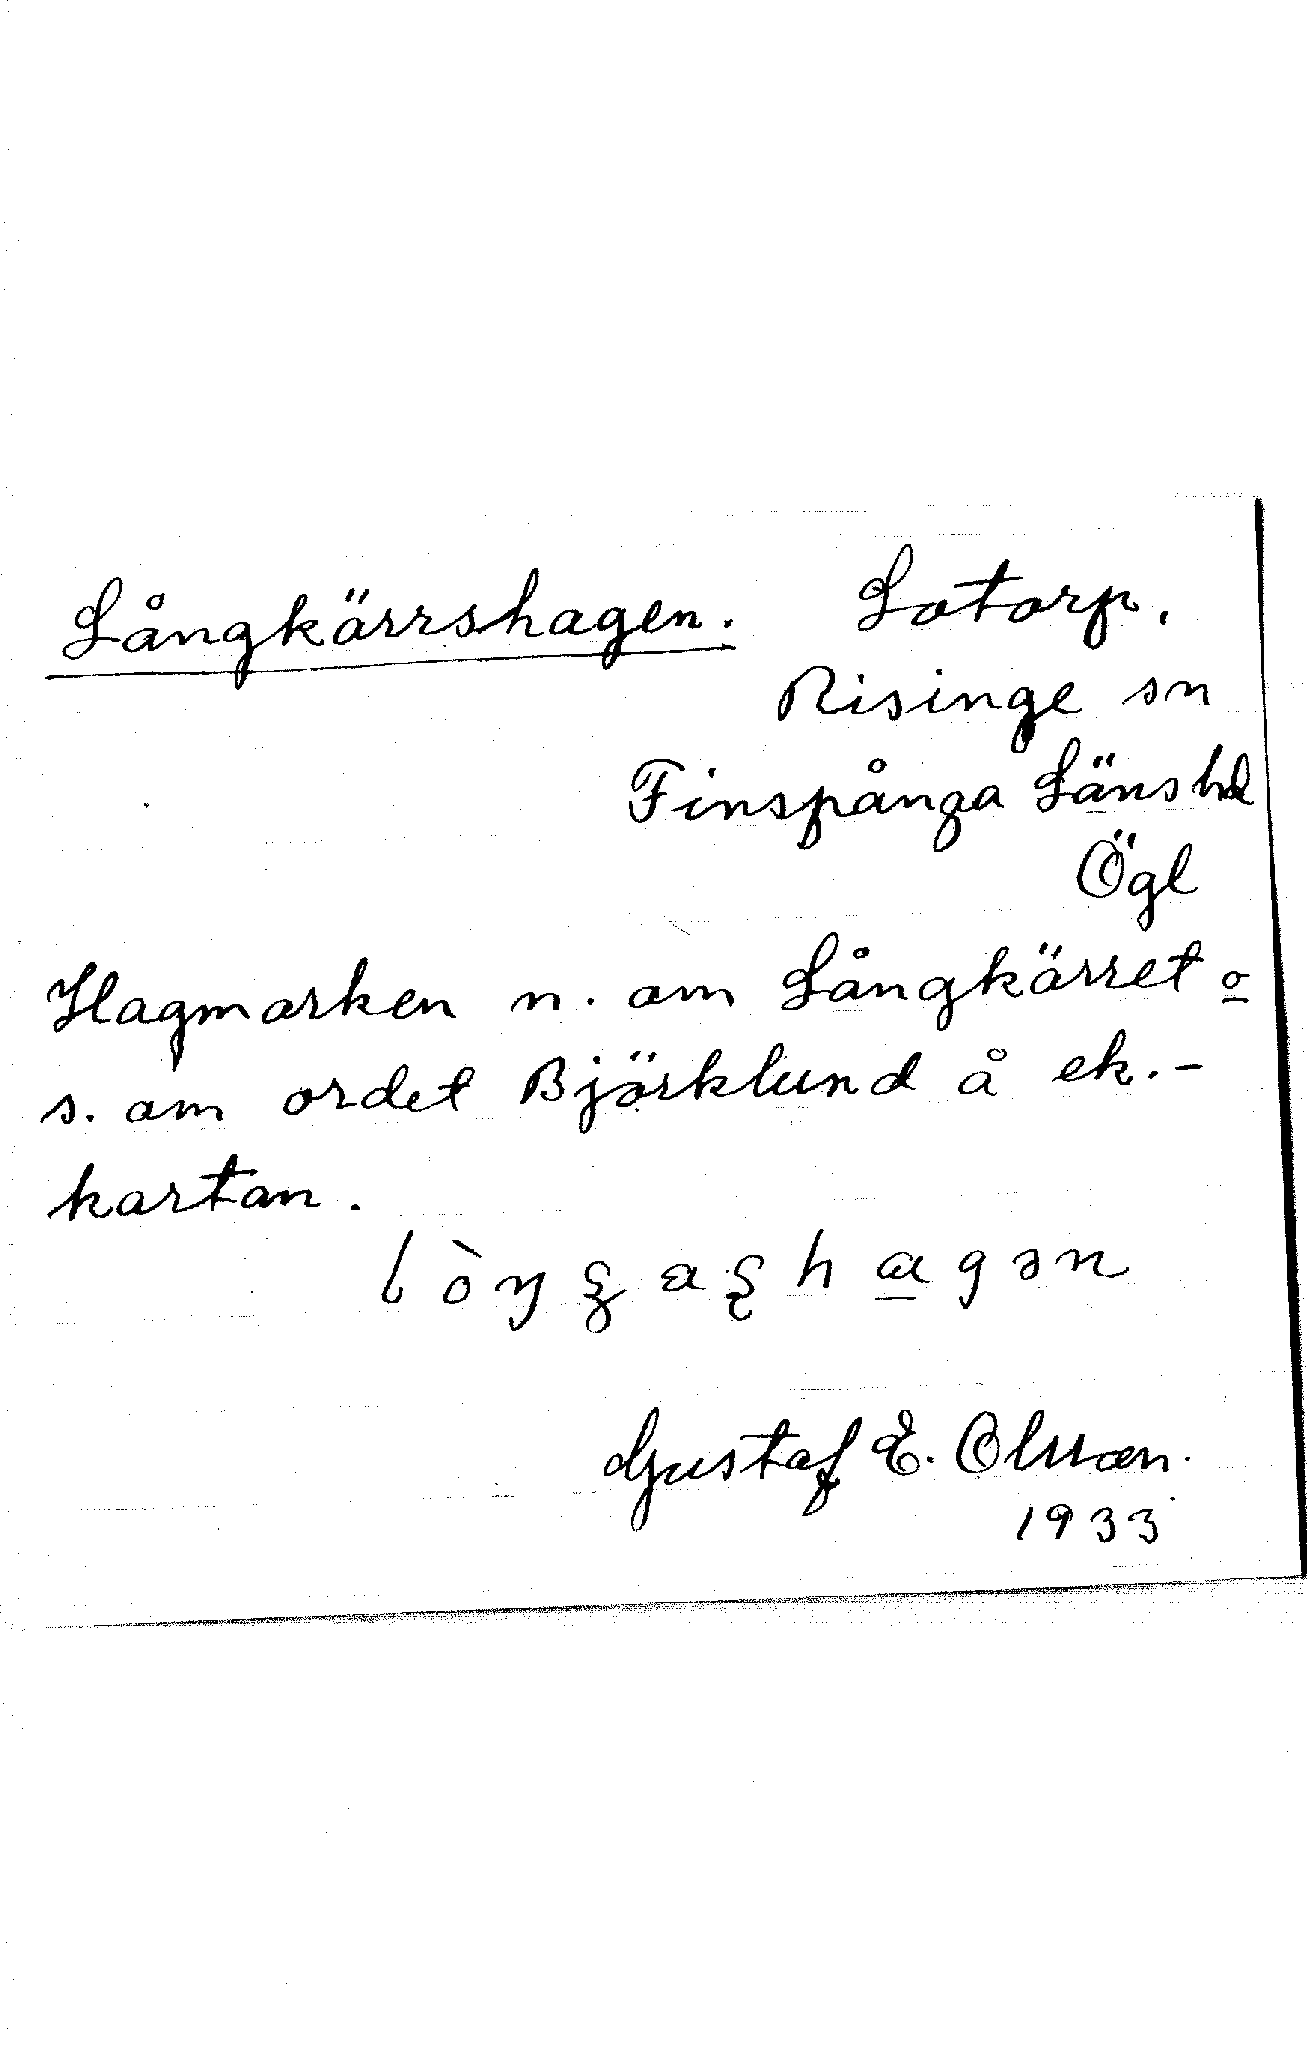 Långkärrshagen. Lotorp.
Risinge sn
Finspånga Länshd
Ögl
Hagmarken n. om Långkärret o
s. om ordet Björklund å ek.-
kartan.
Gustaf E. Olsson.
1933